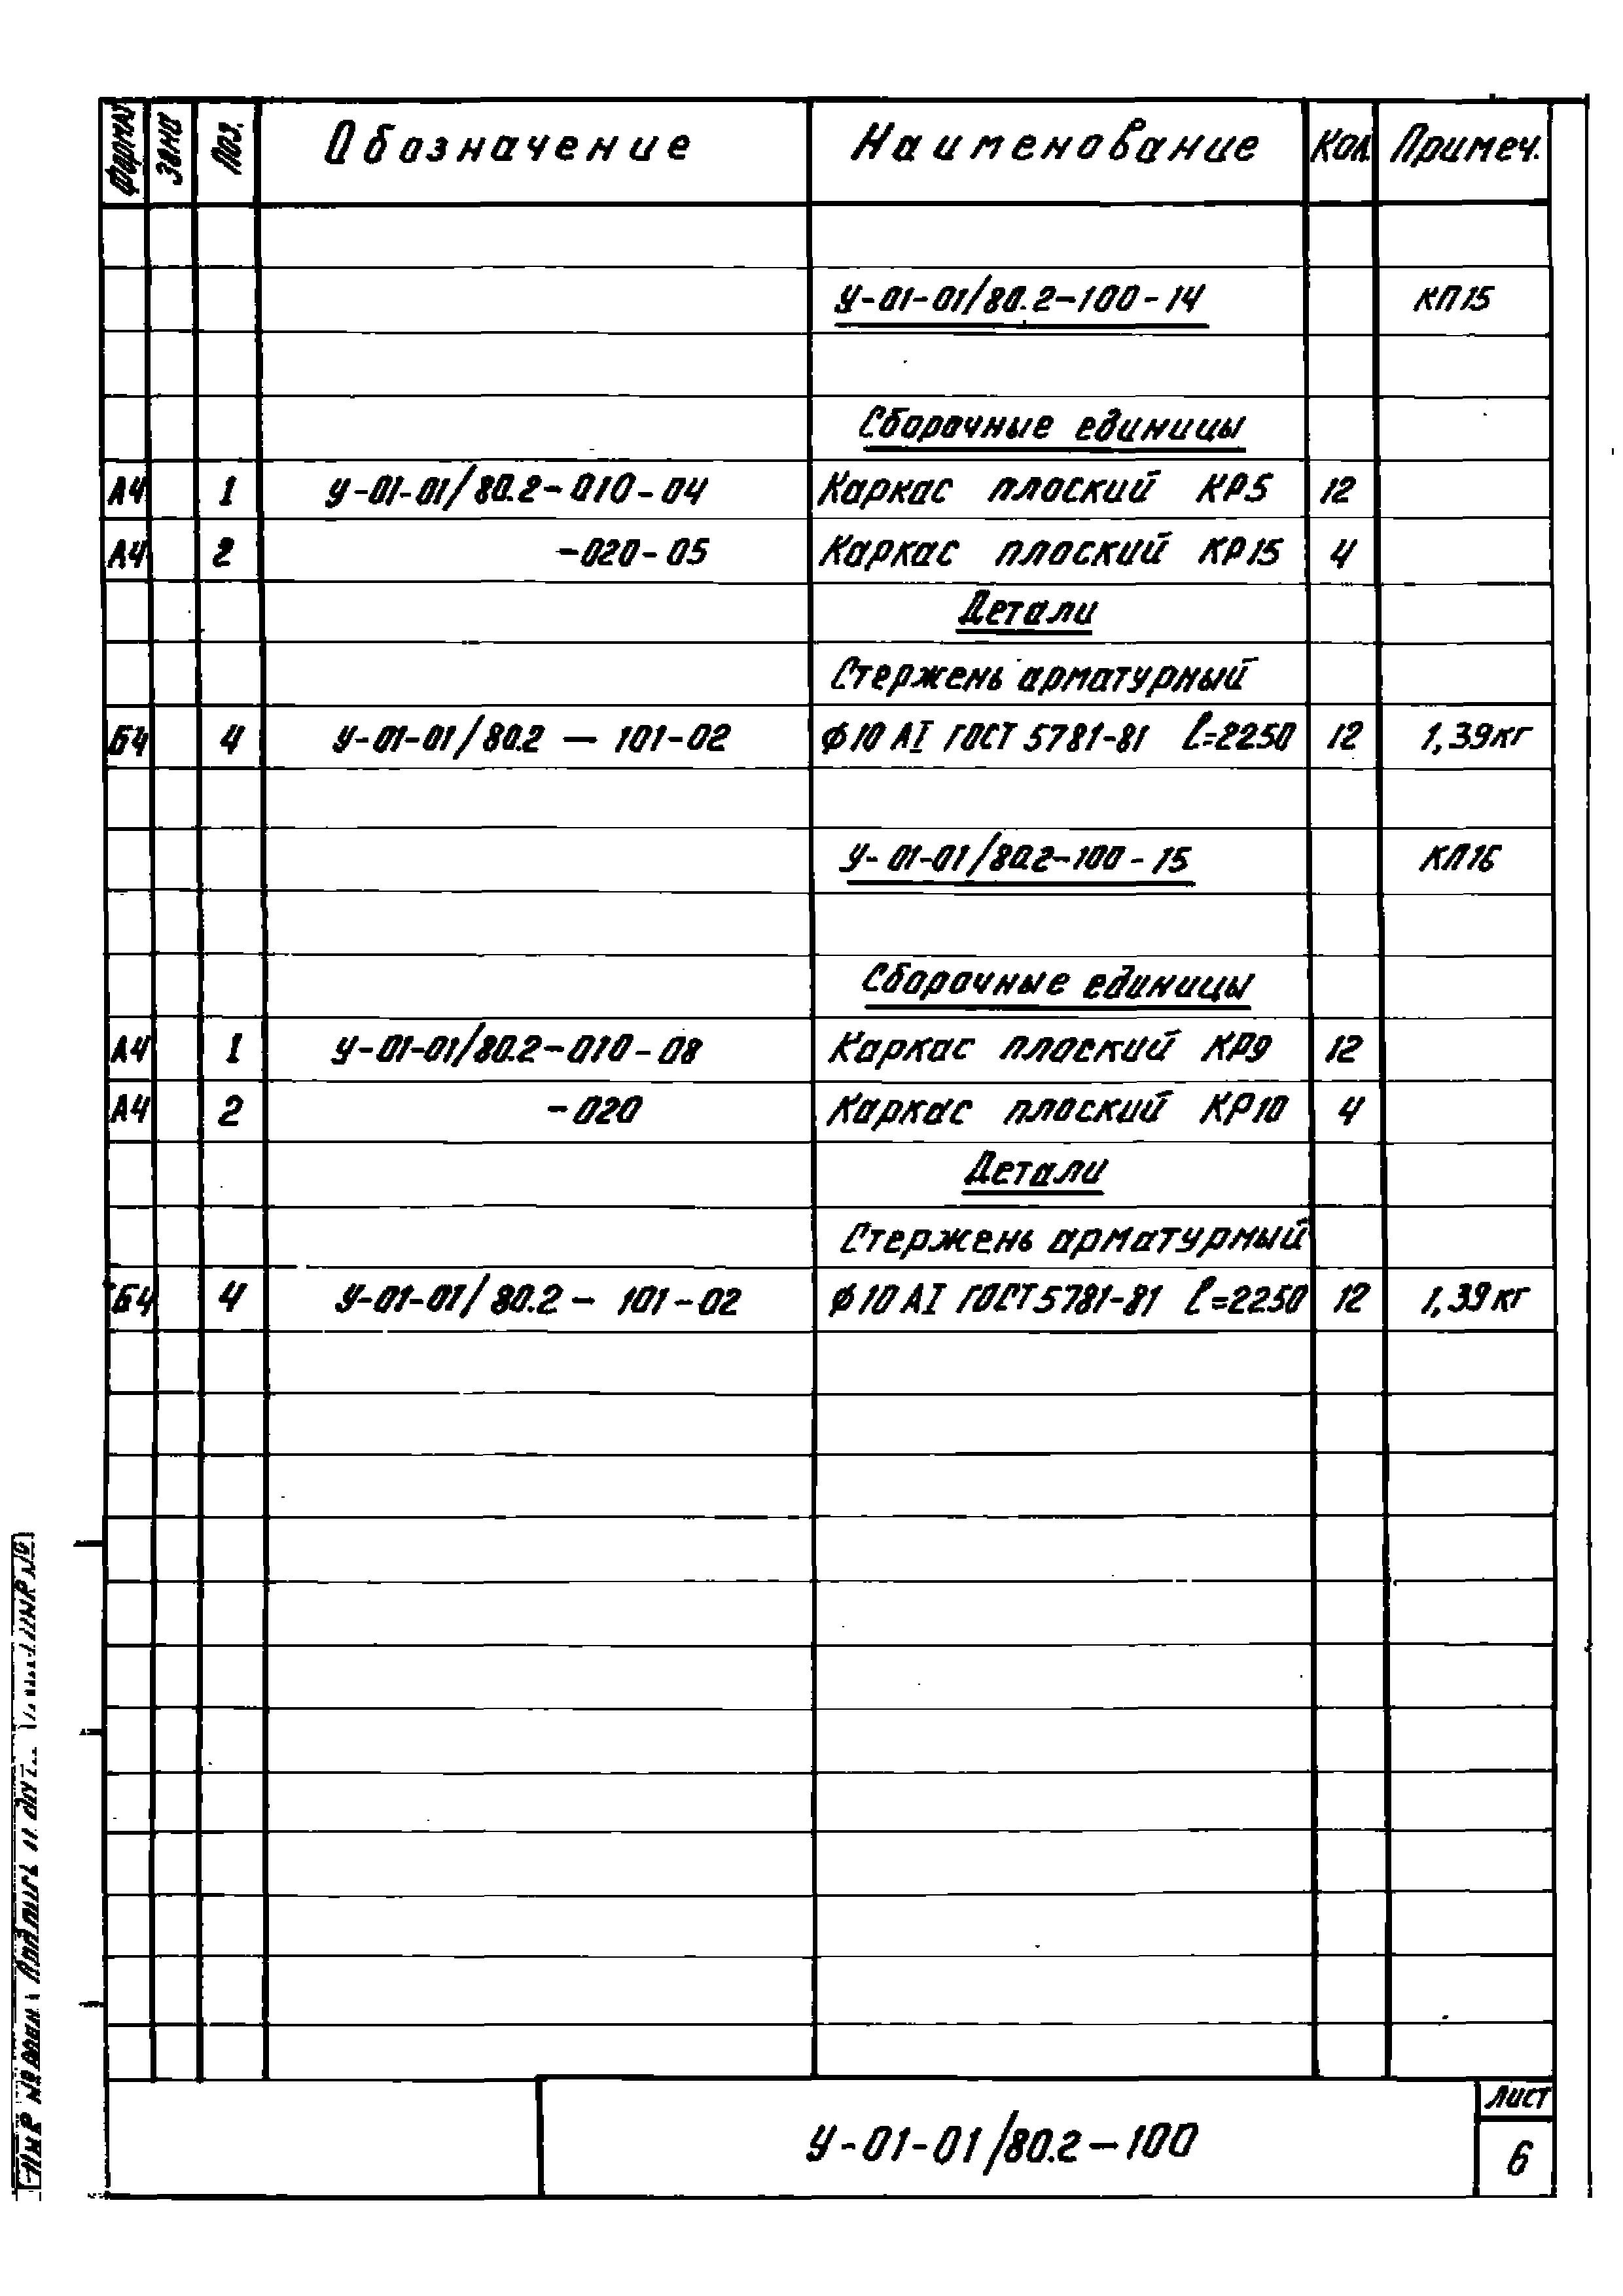 Формат Зона Поз. Обозначение Наименование Кол. Примеч.
У-01-01/80.2-100-14 КП15
Сборочные единицы
А4 1 У-01-01/80.2-010-04 Каркас плоский КР5 12
А4 2 -020-05 Каркас плоский КР15 4
Детали
Стержень арматурный
Б4 4 У-01-01/80.2 — 101-02 ф10 АI ГОСТ 5781-81 ℓ=2250 12 1,39кг
У-01-01/80.2-100-15 КП16
Сборочные единицы
А4 1 У-01-01/80.2-010-08 Каркас плоский КР9 12
А4 2 -020 Каркас плоский КР10 4
Детали
Стержень арматурный
Б4 4 У-01-01/80.2 - 101-02 ф10 АI ГОСТ 5781-81 ℓ=2250 12 1,39кг
Подпись и дата
У-01-01/80.2-100
Лист
6